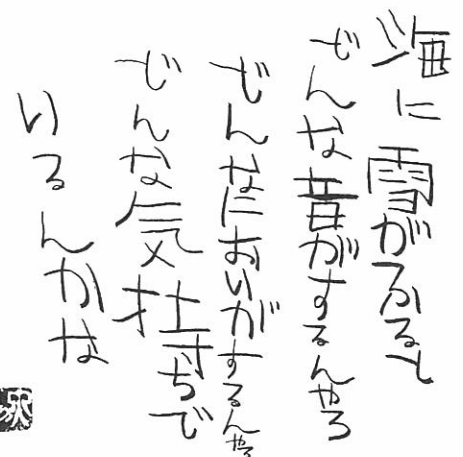 海に雪がふると
どんな音がするんやろ
どんなにおいがするんやろ
どんな気持ちで
いるんかな